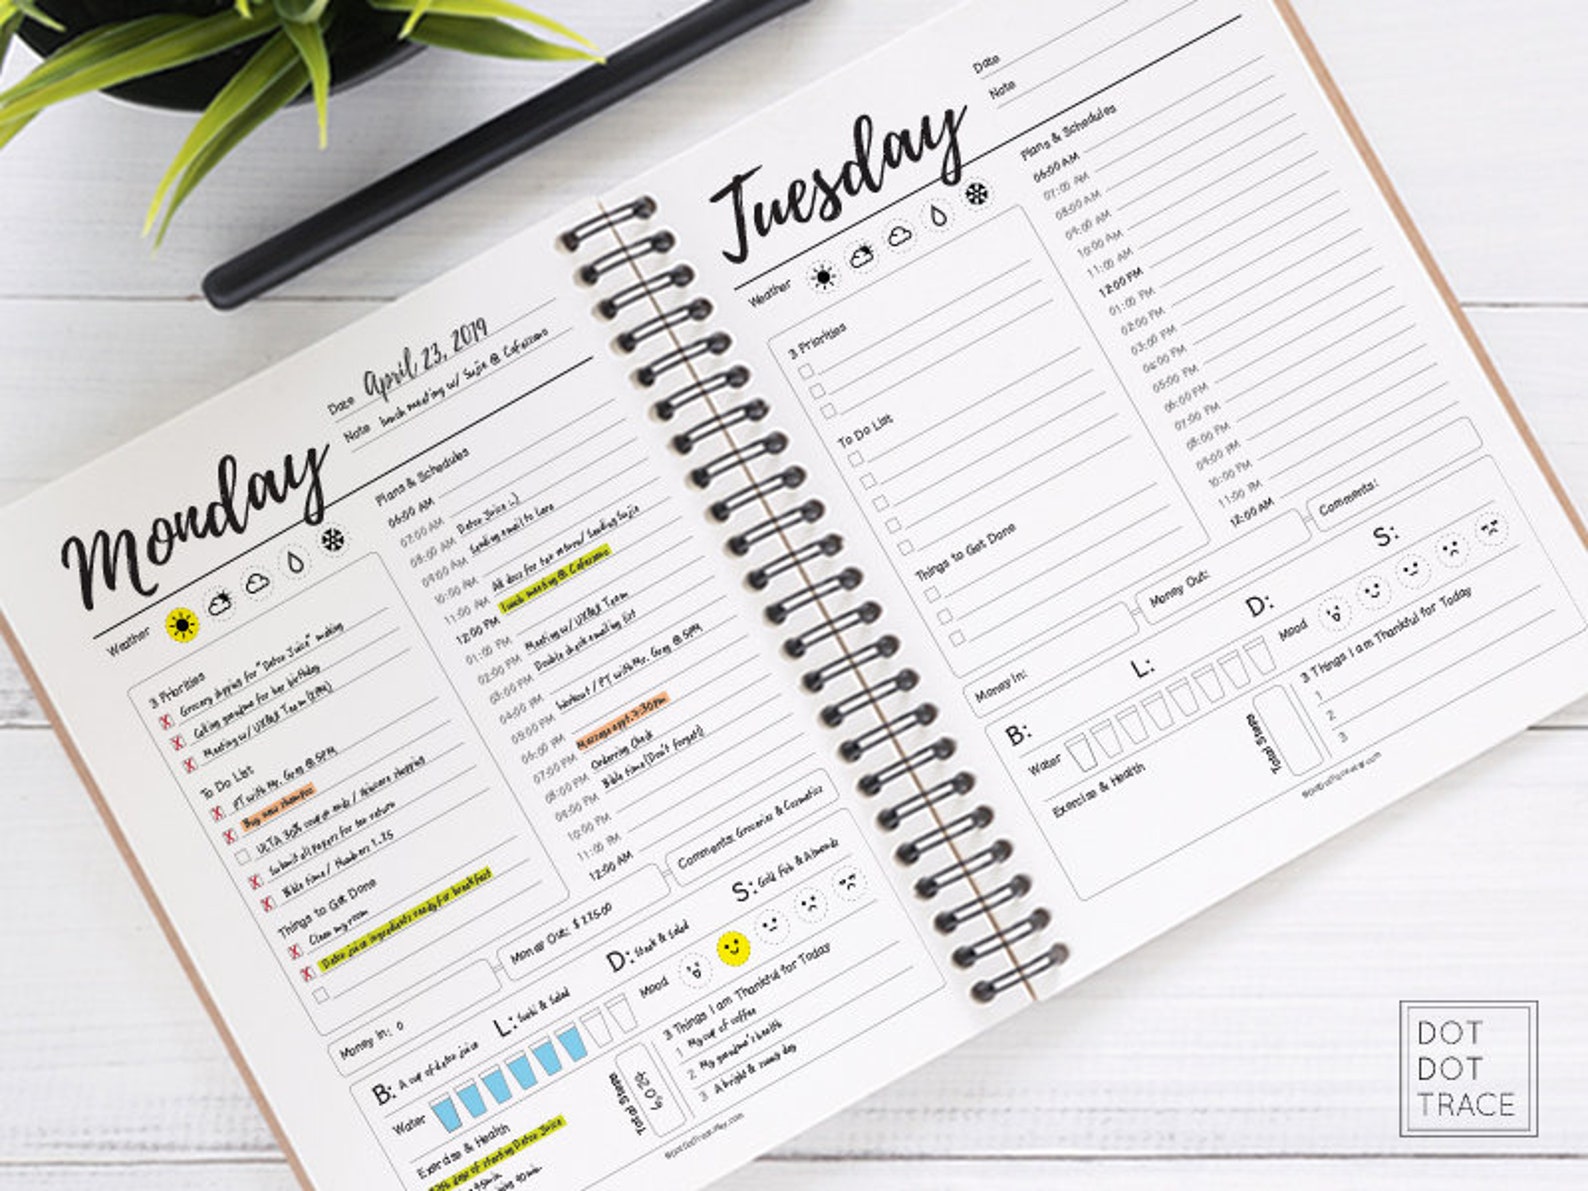 Monday
Date April 23, 2019
Note lunch meeting w/ Sujie @ Cafezzano
Weather
3 Priorities
Grocery shopping for "Detox Juice" making
Calling grandma for her birthday
Meeting w/ UX&UI Team (2PM)
To Do List
PT with Mr. Greg @ 5PM
Buy new shampoo
ULTA 30% coupon ends / skincare shopping
Submit all papers for tax return
Bible time / Numbers 1-25
Things to Get Done
Clean my room
Detox juice ingredients ready for breakfast
Plans & Schedules
06:00 AM
07:00 AM Detox Juice :)
08:00 AM Sending email to
09:00 AM
10:00 AM All docs for tax return/ Sending Sujie
11:00 AM lunch meeting @ Cafezzano
12:00 PM
01:00 PM Meeting w/ UX&UI Team
02:00 PM Double check emailing list
03:00 PM
04:00 PM Workout / PT with Mr. Greg @ 5PM
05:00 PM
06:00 PM Massage appt. 7:30pm
07:00 PM Ordering Check
08:00 PM Bible time (Don't forget!)
09:00 PM
10:00 PM
11:00 PM
12:00 AM
Money In: 0
Money Out: $ 225.00
Comments: Groceries & Cosmetics
B: A cup of detox juice
L: Sushi & Salad
D: Steak & Salad
S: Gold Fish & Almonds
Water
Mood
Exercise & Health
day of starting Detox Juice
Total Steps
6,024
3 Things I am Thankful for Today
1 My cup of coffee
2 My grandma's health
3 A bright & sunny day
Tuesday
Date
Note
Weather
3 Priorities
To Do List
Things to Get Done
Plans & Schedules
06:00 AM
07:00 AM
08:00 AM
09:00 AM
10:00 AM
11:00 AM
12:00 PM
01:00 PM
02:00 PM
03:00 PM
04:00 PM
05:00 PM
06:00 PM
07:00 PM
08:00 PM
09:00 PM
10:00 PM
11:00 PM
12:00 AM
Money In:
Money Out:
Comments:
B:
L:
D:
S:
Water
Mood
Exercise & Health
Total Steps
3 Things I am Thankful for Today
1
2
3
DOT
DOT
TRACE